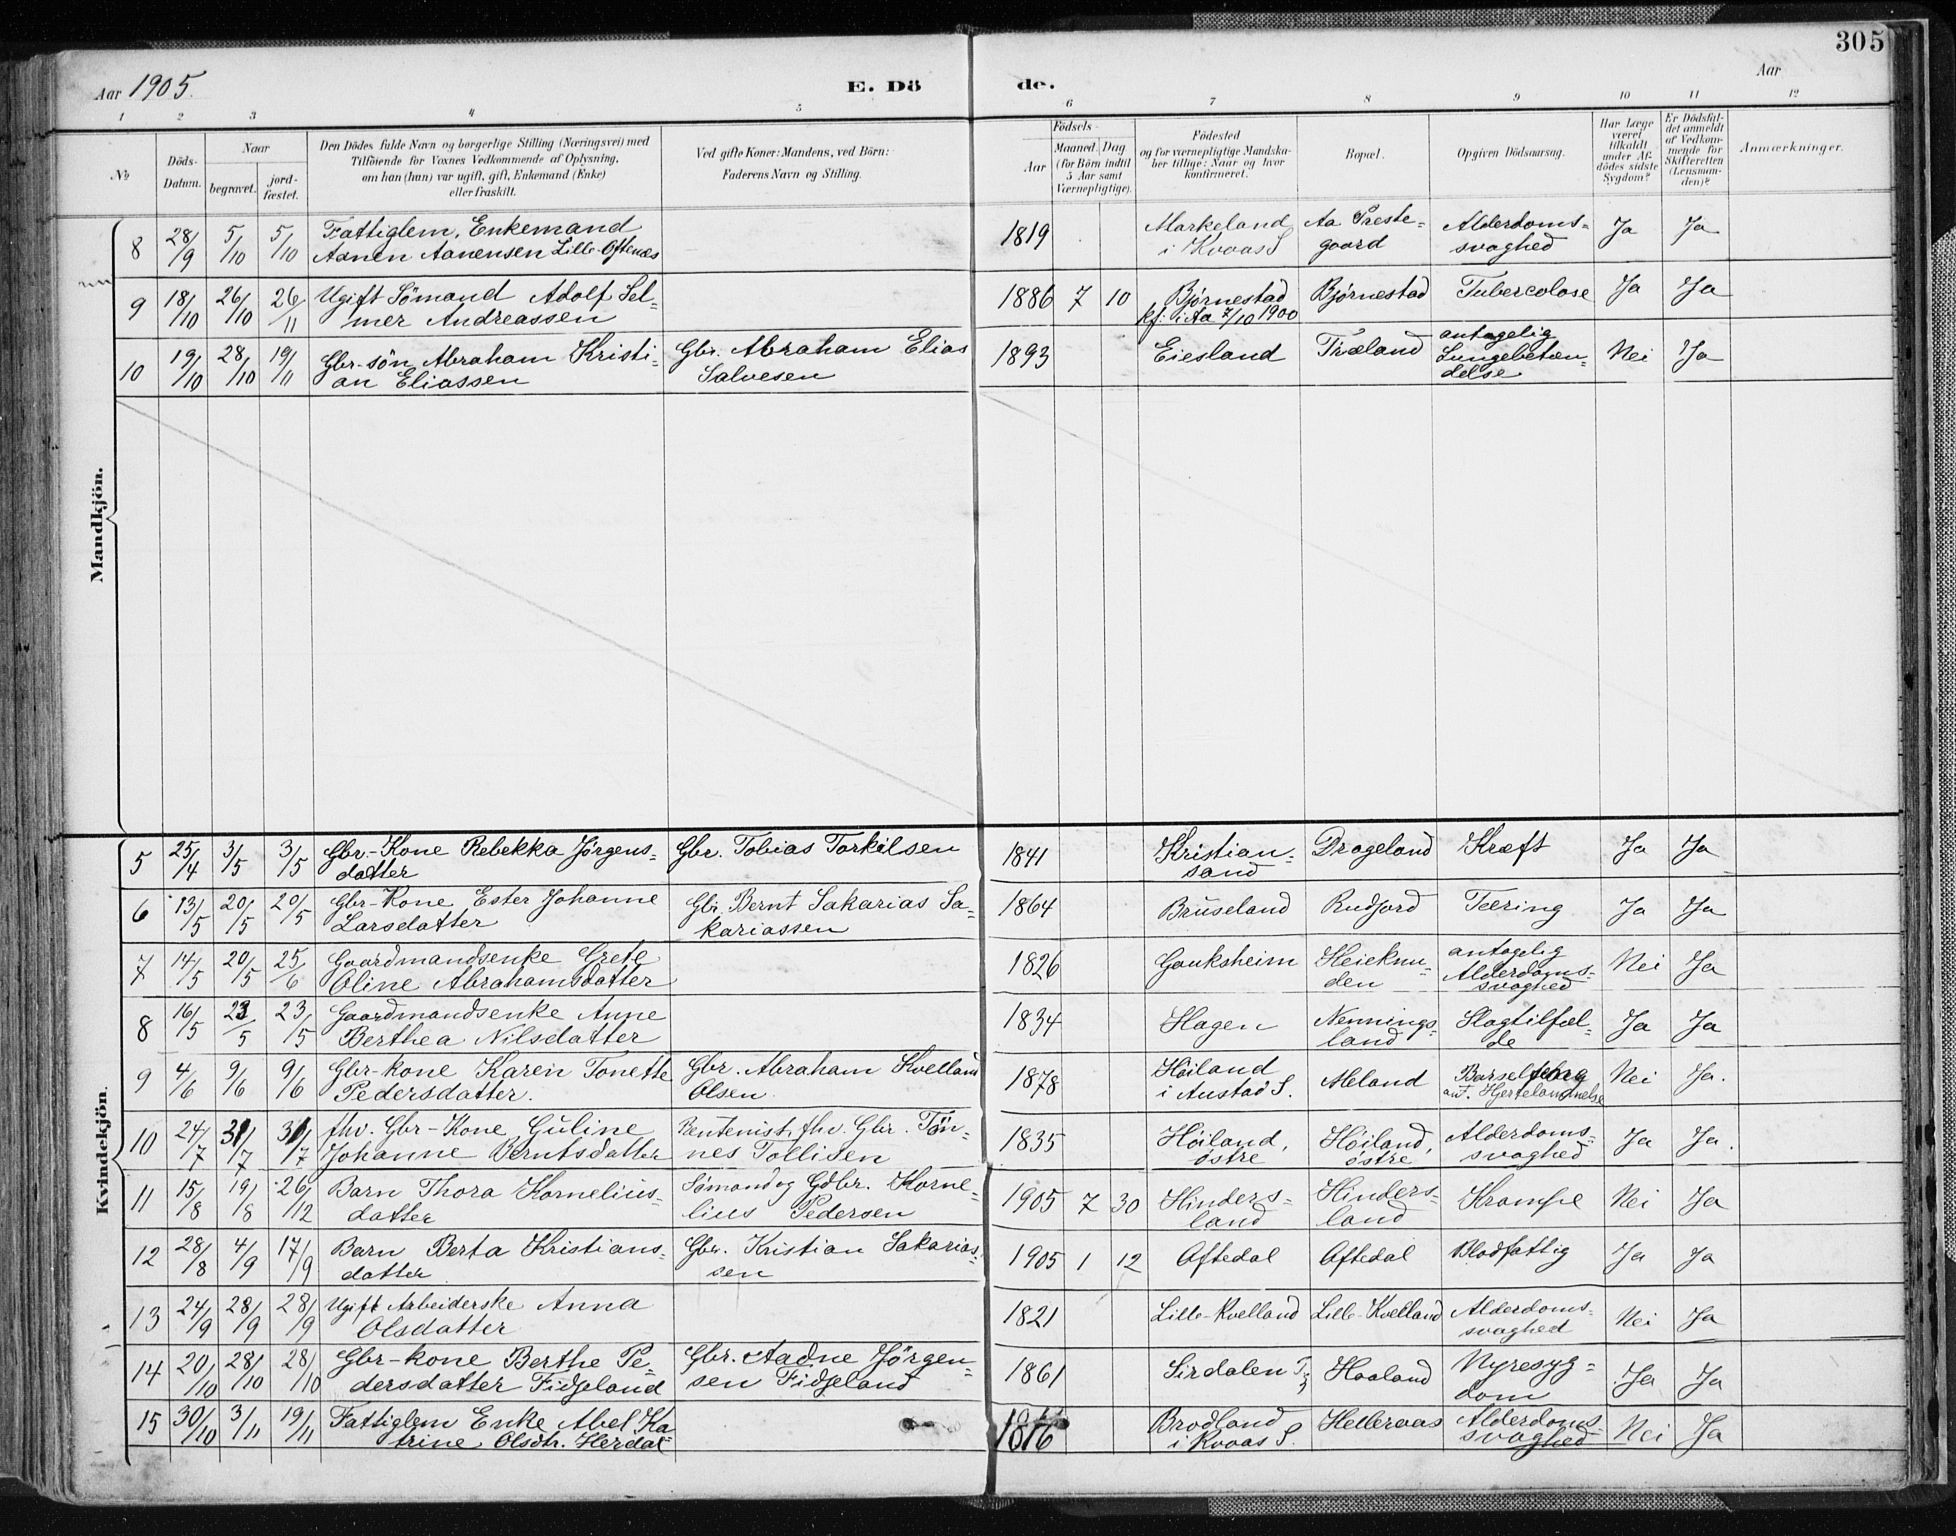 305
Aar 1905.
E. Dö de.
Aar
1 2 3 4 5 6 7 8 9 10 11 12
№
Döds-
Datum.
Naar
begravet.
jord-
fæstet.
Den Dödes fulde Navn og borgerlige Stilling (Næringsvei) med
Tilföiende for Voxnes Vedkommende af Oplysning,
om han (hun) var ugift, gift, Enkemand (Enke)
eller fraskilt.
Ved gifte Koner: Mandens, ved Börn:
Faderens Navn og Stilling.
Födsels-
Aar
Maaned. Dag
(for Börn indtil
5 Aar samt
Værnepligtige).
Födested
og for værnepligtige Mandska-
ber tillige: Naar og hvor
konfirmeret.
Bopæl.
Opgiven Dödsaarsag.
Har Læge
været
tilkaldt
under Af-
dödes sidste
Sygdom?
Er Dödsfal-
det anmeldt
af Vedkom-
mende for
Skifteretten
(Lensman-
den)?
Anmærkninger.
Mandkjön.
8 28/9 5/10 5/10 Fattiglem, Enkemand 1819 Markeland Aa Preste- Alderdoms- Ja Ja
Aanen Aanensen Lille-Oftenæs i Kvaas S gaard svaghed
9 18/10 26/10 26/11 Ugift Sömand Adolf Sel- 1886 7 10 Bjørnestad Bjørnestad Tubercolose Ja Ja
mer Andreassen kf: i Aa 7/10 1900
10 19/10 28/10 19/11 Gbr-sön Abraham Kristi- Gbr. Abraham Elias 1893 Eiesland Træland antagelig Nei Ja
an Eliassen Salvesen Lungebetæn-
delse
Kvindekjön.
5 25/4 3/5 3/5 Gbr.-Kone Rebekka Jörgens- Gbr. Tobias Torkilsen 1841 Kristian- Drageland Kræft Ja Ja
datter sand
6 13/5 20/5 20/5 Gbr-Kone Ester Johanne Gbr. Bernt Sakarias Sa- 1864 Bruseland Rudjord Tæring Ja Ja
Larsdatter kariassen
7 14/5 20/5 25/6 Gaardmandsenke Grete 1826 Gauksheim Heieknu- antagelig Nei Ja
Oline Abrahamsdatter den Alderdoms-
svaghed
8 16/5 23/5 23/5 Gaardmandsenke Anne 1834 Hagen Nennings- Slagtilfæl- Ja Ja
Berthea Nilsdatter land de
9 4/6 9/6 9/6 Gbr-kone Karen Tonette Gbr. Abraham Kvelland 1878 Höiland Aleland Barselseng Nei Ja.
Pedersdatter. Olsen. i Austad S. ant. Hjertelammelse
10 24/7 31/7 31/7 fhv. Gbr-Kone Guline Rentenist, fhv. Gbr. Tön- 1835 Höiland, Höiland, Alderdoms- Ja Ja.
Johanne Berntsdatter nes Tollisen östre östre svaghed
11 15/8 19/8 26/12 Barn Thora Kornelius- Sömand og Gdbr. Korne- 1905 7 30 Hinders- Hinders- Krampe Nei Ja
datter lius Pedersen land land
12 28/8 4/9 17/9 Barn Berta Kristians- Gbr. Kristian Sakarias- 1905 1 12 Oftedal Oftedal Blodfattig Ja Ja
datter sen
13 24/9 28/9 28/9 Ugift Arbeiderske Anna 1821 Lille-Kvelland Lille-Kvelland Alderdoms- Nei Ja
Olsdatter svaghed
14 20/10 28/10 28/10 Gbr-kone Berthe Pe- Gbr. Aadne Jörgen- 1861 Sirdalen Haaland Nyresyg- Ja Ja
dersdatter Fidjeland sen Fidjeland dom
15 30/10 3/11 19/11 Fattiglem Enke Abel Ka- 1816 Brodland Hellevaas Alderdoms- Nei Ja
trine Olsdtr. Herdal i Kvaas S. svaghed